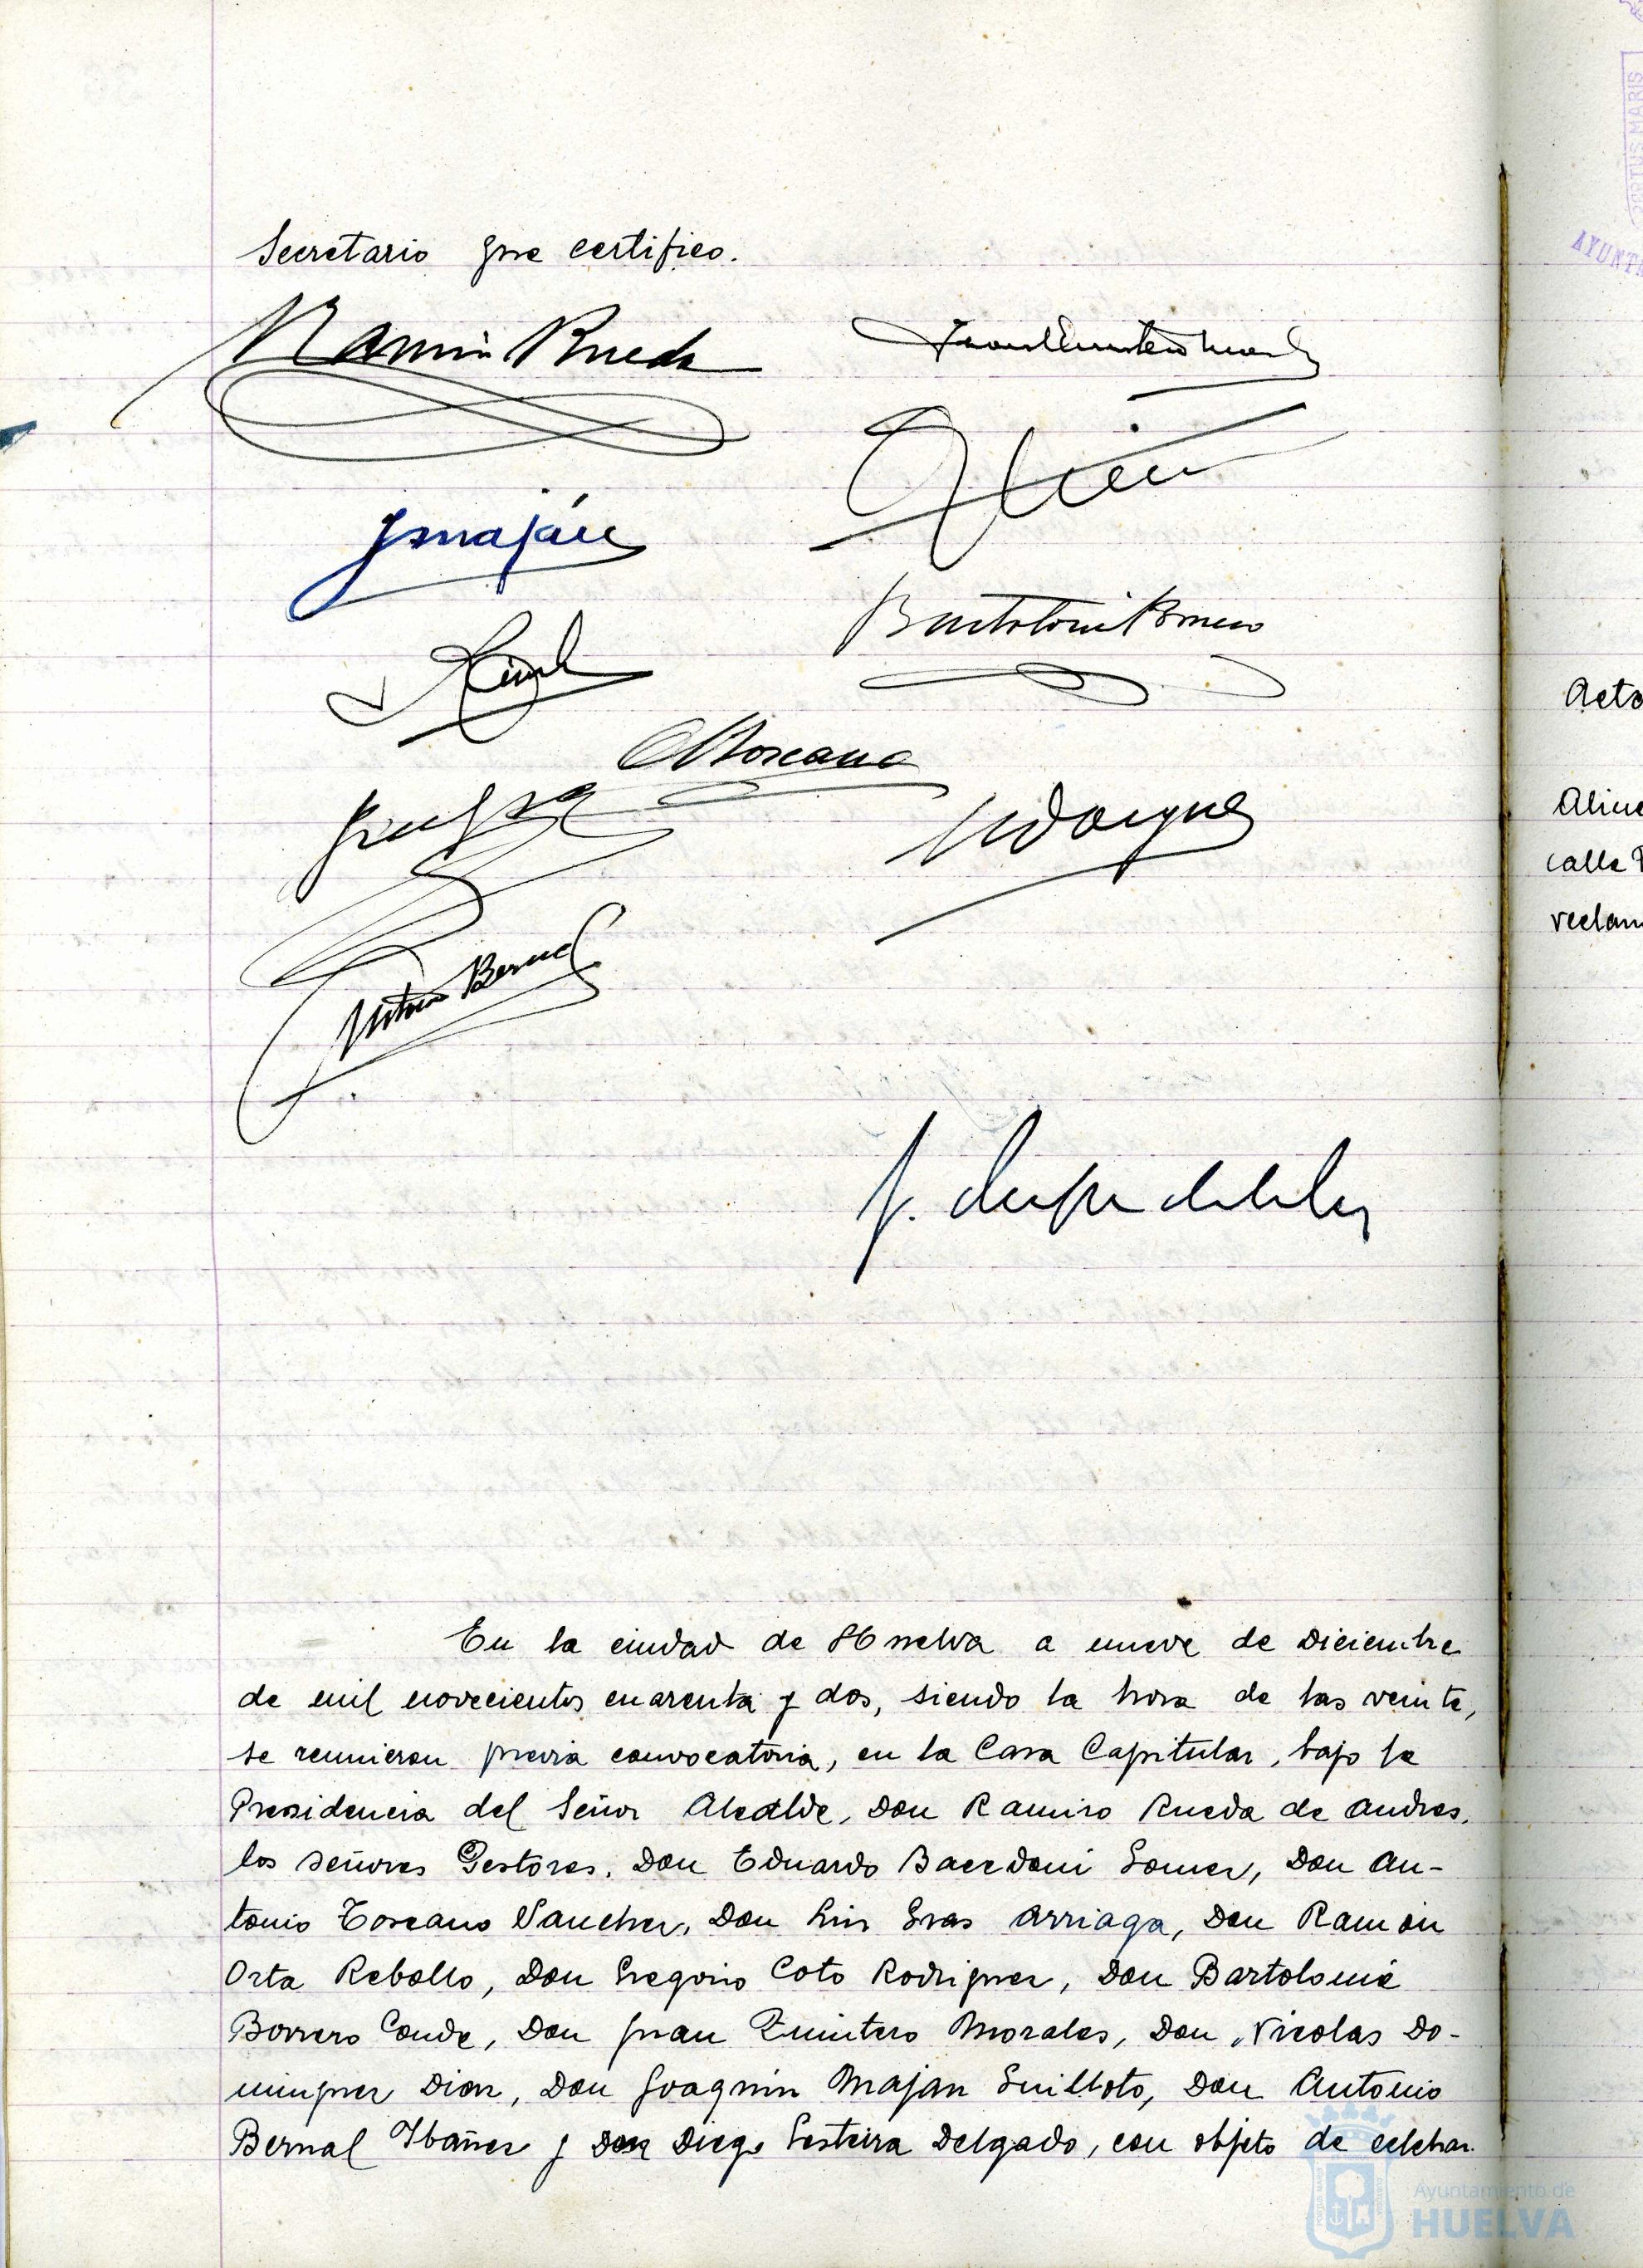 Secretario que certifico.
Ramiro Rueda
Juan Quintero Morales
JMaján
Bartolomé Borrero
AToscano
NDominguez
Antonio Bernal
En la ciudad de Huelva a nueve de Diciembre
de mil novecientos cuarenta y dos, siendo la hora de las veinte,
se reunieron previa convocatoria, en la Casa Capitular, bajo la
Presidencia del Señor Alcalde, Don Ramiro Rueda de Andres,
los señores Gestores, Don Eduardo Bacedoni Gomez, Don An-
tonio Toscano Sanchez, Don Luis Gras Arriaga, Don Ramón
Orta Rebollo, Don Gregorio Coto Rodriguez, Don Bartolomé
Borrero Conde, Don Juan Quintero Morales, Don Nicolas Do-
minguez Diaz, Don Joaquin Majan Guilloto, Don Antonio
Bernal Ibañez y Don Diego Sesteira Delgado, con objeto de celebrar
Ayuntamiento de
HUELVA
PORTUS MARIS
AYUNTA
Acta
calle
reclam